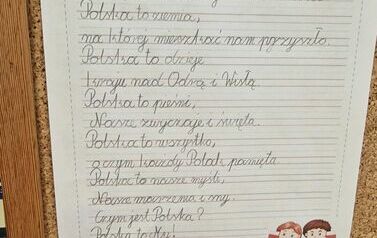 Polska to ziemia,
na której mieszkać nam przyszło.
Polska to dzieje
kraju nad Odrą i Wisłą
Polska to pieśni,
Nasze zwyczaje i święta
Polska to wszystko,
o czym każdy Polak pamięta
Polska to nasze myśli,
Nasze marzenia i my.
Czym jest Polska?
Polska to My!